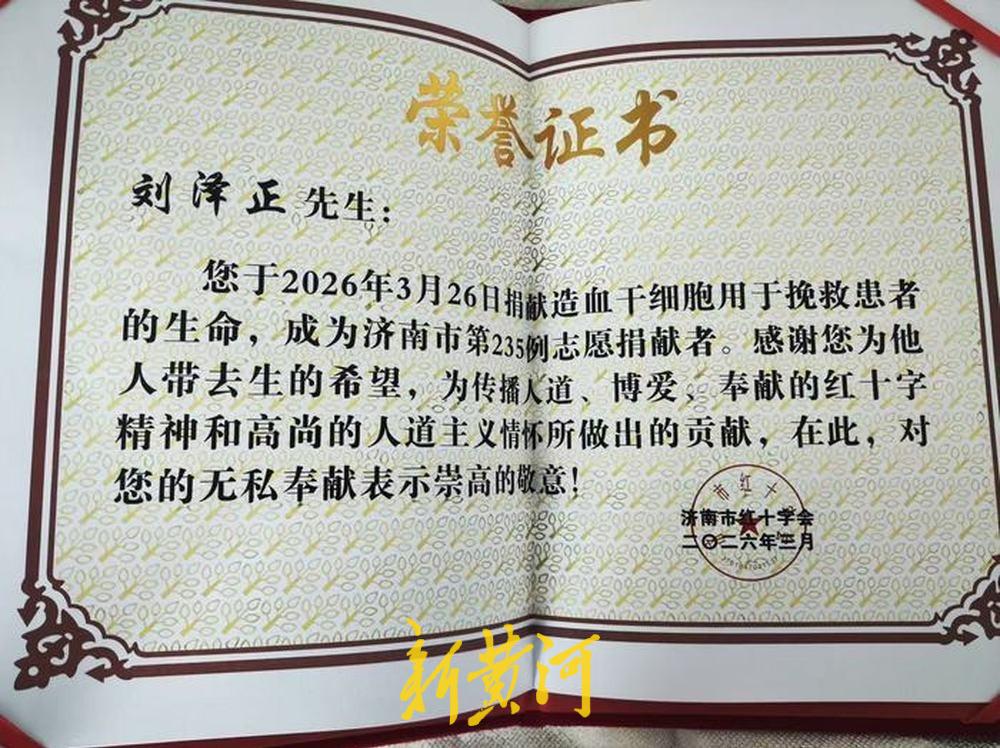 荣誉证书
刘泽正先生：
您于2026年3月26日捐献造血干细胞用于挽救患者
的生命，成为济南市第235例志愿捐献者。感谢您为他
人带去生的希望，为传播人道、博爱、奉献的红十字
精神和高尚的人道主义情怀所做出的贡献，在此，对
您的无私奉献表示崇高的敬意！
市红十
济南市红十字会
二〇二六年三月
新黄河